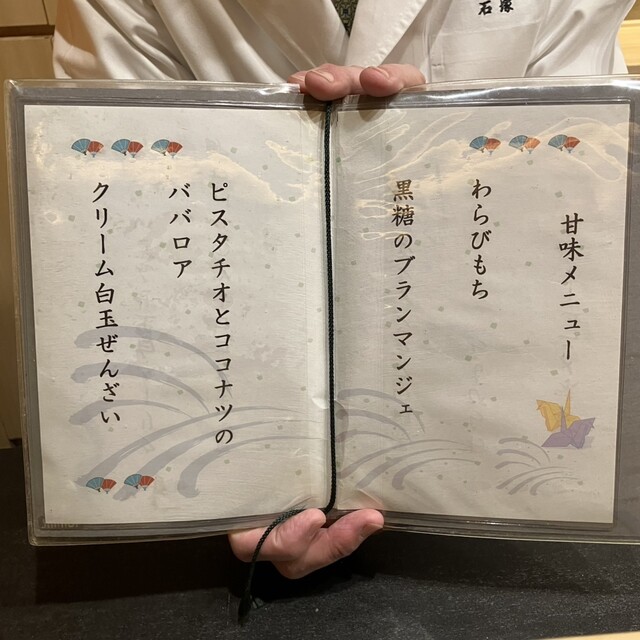 石塚
甘味メニュー
わらびもち
黒糖のブランマンジェ
ピスタチオとココナツの
ババロア
クリーム白玉ぜんざい